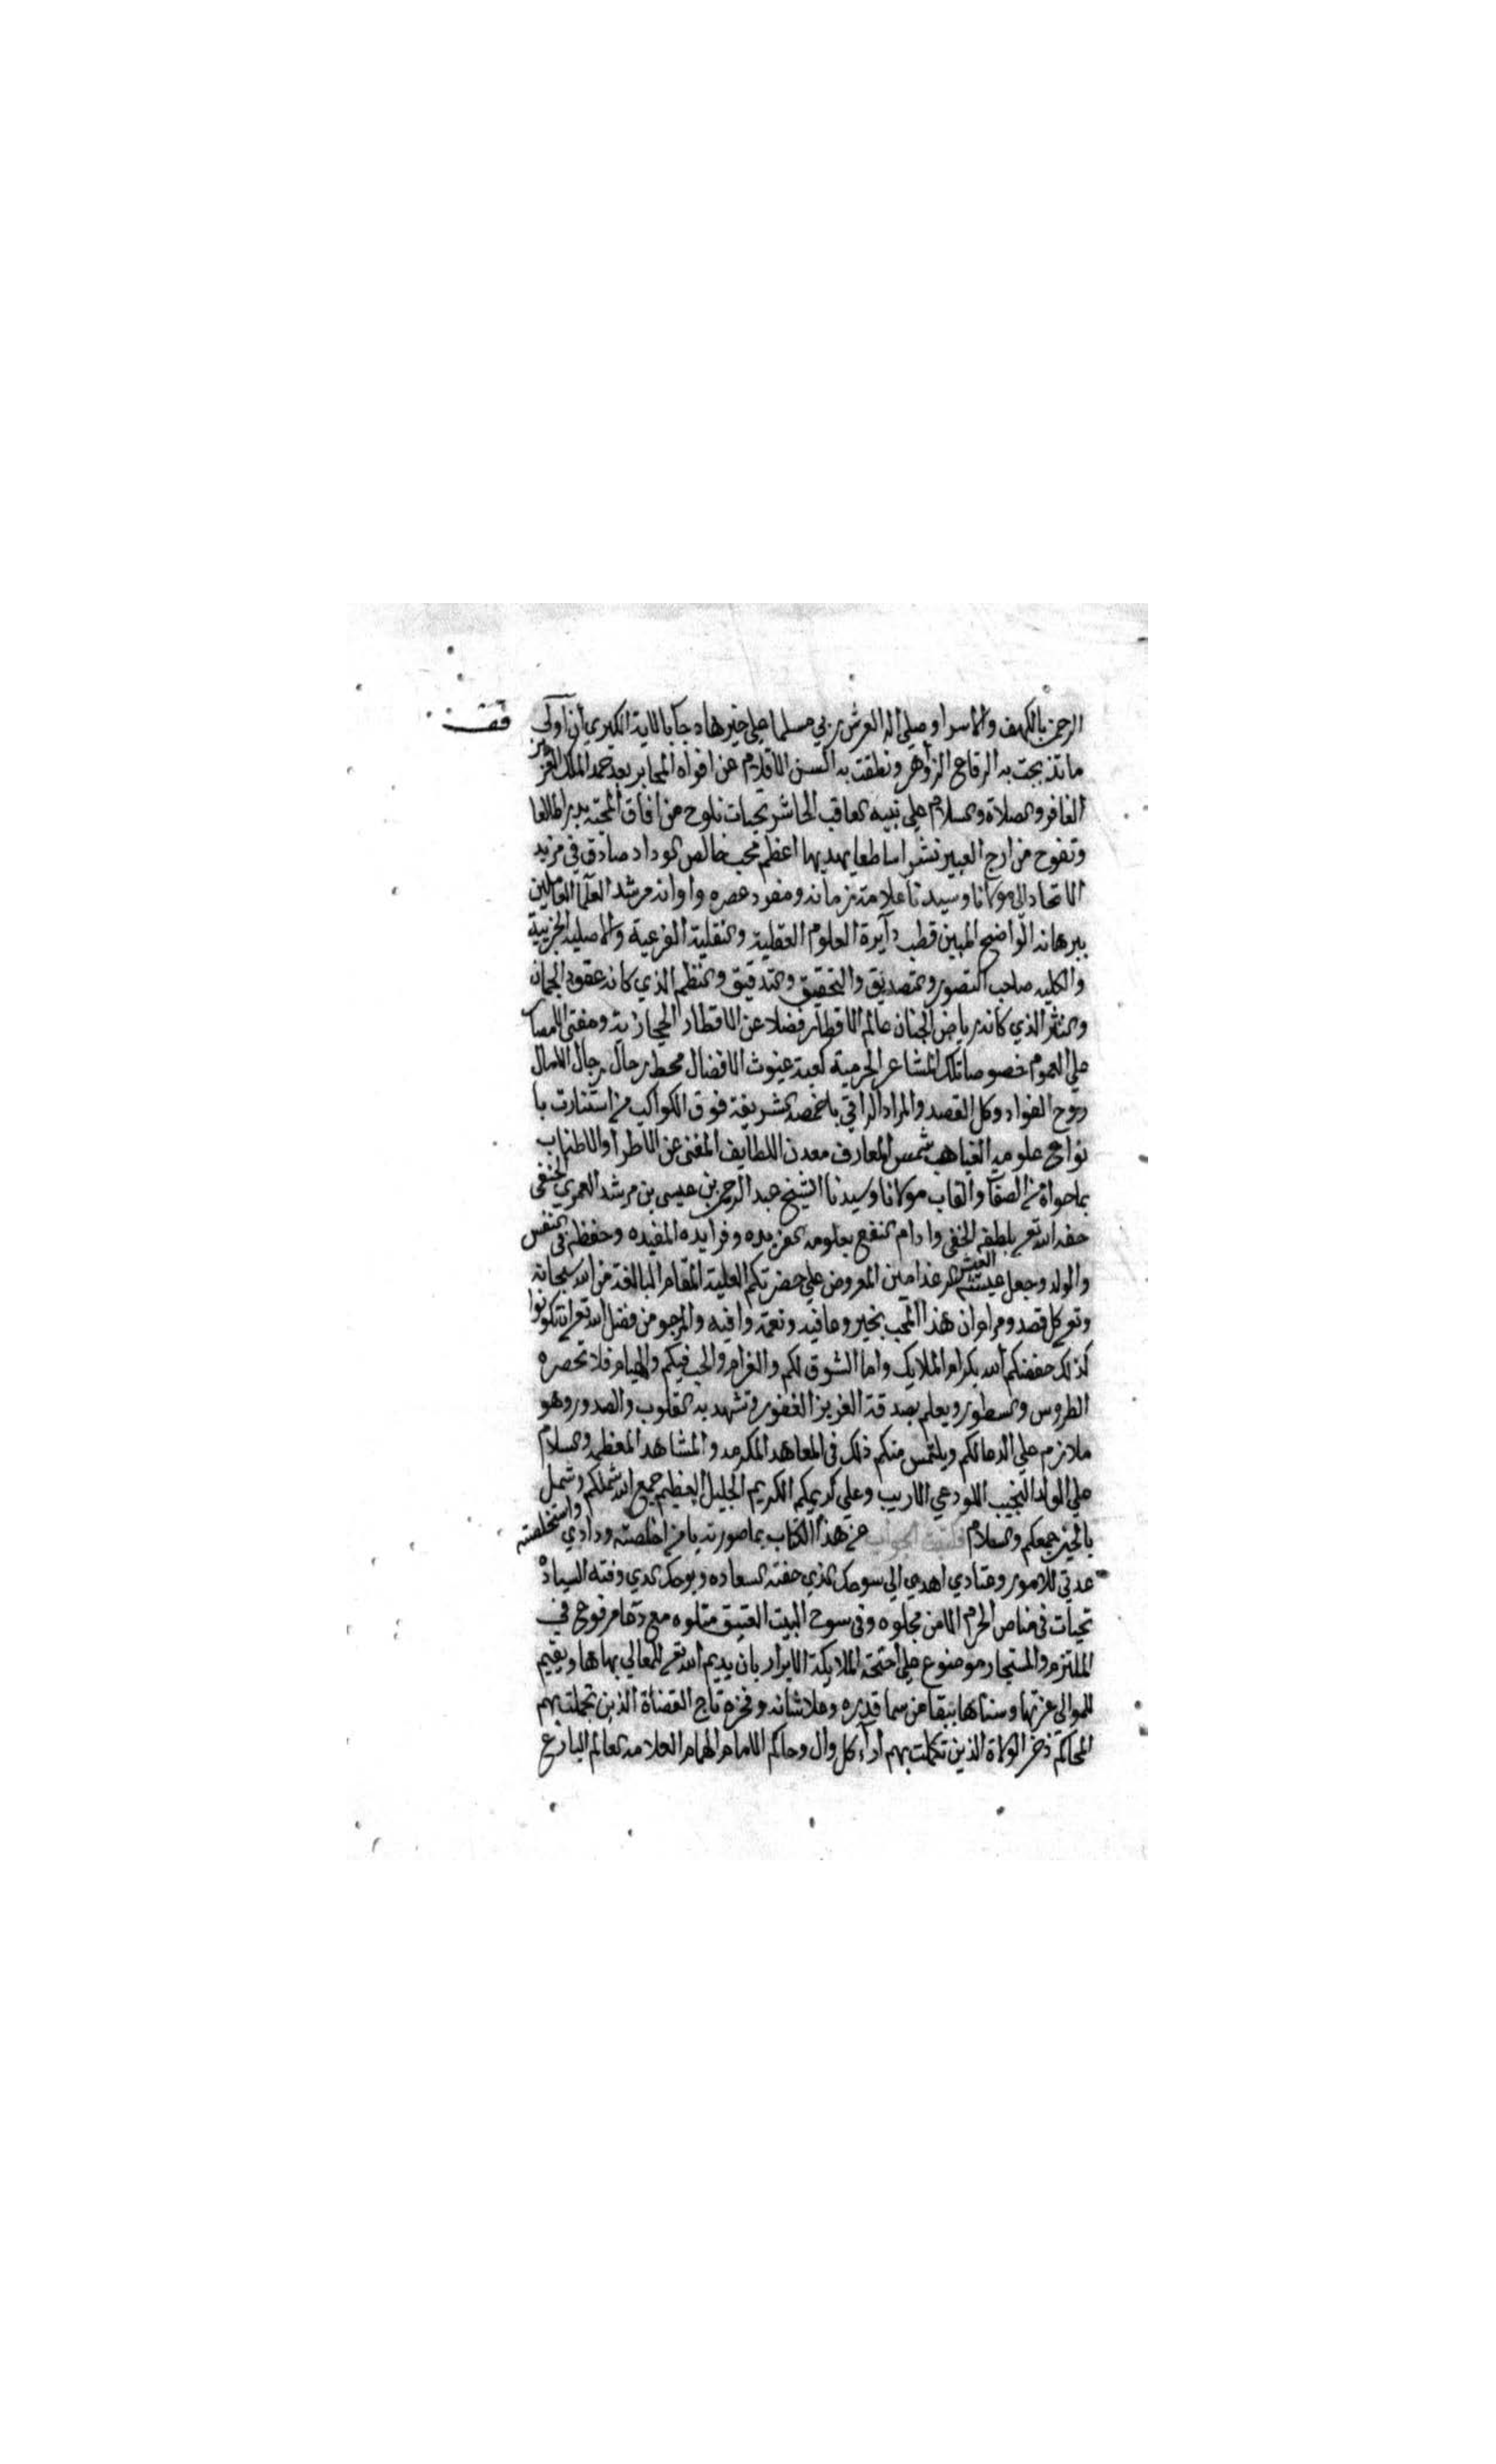 الرحمن بالكهف والاسرا وصلى اله العرش ربي مسلما على خير هاد جا بالاية الكبري ان اولى
وقف
ما تذبجت به الرقاع الزواهر ونطقت به السن الاقلام عن افواه المحابر بعد حمد الملك العزيز
الغافر والصلاة والسلام على نبيه العاقب الحاشر تحيات تلوح من افاق المحبة بدرا طالعا
وتفوح من ارج العبير نشرا ساطعا يهديها اعظم محب خالص الوداد صادق في مزيد
الاتحاد الى مولانا وسيدنا علامة زمانه ومفرد عصره واوانه مرشد العلما العاملين
ببرهانه الواضح المبين قطب دآيرة العلوم العقلية والنقلية الفرعية والاصلية الجزيية
والكليه صاحب التصور والتصديق والتحقيق والتدقيق والنظم الذي كانه عقود الجمان
والنثر الذي كانه رياض الجنان عالم الاقطار فضلا عن الاقطار الحجازية ومفتي الامصار
على العموم خصوصا تلك المشاعر الحرمية كعبة غيوث الافضال محط رحال رجال الامال
روح الفواد وكل القصد والمراد الراقي باخمصه الشريفة فوق الكواكب من استنارت با
نواع علومه الغياهب شمس المعارف معدن اللطايف المغني عن الاطرا والاطناب
بما حواه من الصفات والقاب مولانا وسيدنا الشيخ عبد الرحمن بن عيسى بن مرشد العمري الحنفي
حفه الله تع بلطفه الخفي وادام النفع بعلومه العزيده وفرايده المفيده وحفظه في النفس
والولد وجعل عيشته العيش الرغد امين المعروض على حضرتكم العلية المقام البالغة من الله سبحانه
وتع كل قصد ومرام ان هذا المحب بخير وعافيه ونعمة وافيه والمرجو من فضل الله تع ان تكونوا
كذلك حفضكم الله بكرام الملايك واما الشوق لكم والغرام والحب فيكم والهيام فلا تحصره
الطروس والسطور ويعلم بصدقه العزيز الغفور وتشهد به القلوب والصدور وهو
ملازم على الدعا لكم ويلتمس منكم ذلك في المعاهد المكرمه والمشاهد المعظمه والسلام
على الولد النجيب اللودعي الاريب وعلى كريمكم الكريم الجليل العظيم جمع الله شملكم وشمل
بالخير جمعكم والسلام فكتبت الجواب عن هذا الكتاب بما صورته يا من اخلصته ودادي واستخلصته
عدتي للامور وعتادي اهدي الى سوحك الذي حفته السعاده وبوحك الذي وفته السياده
تحيات في مناص الحرم الامن مجلوه وفي سوح البيت العتيق متلوه مع دعا مرفوع في
الملتزم والمستجار موضوع على اجنحة الملايكة الابرار بان يديم الله تع للمعالي بهاها ويقيم
للموالي عزتها وسناها ببقا من سما قدره وعلا شانه وفخره تاج القضاة الذين تجملت بهم
المحاكم ذخر الولاة الذين تكملت بهم ارآء كل وال وحاكم الامام الهمام العلامه العالم البارع